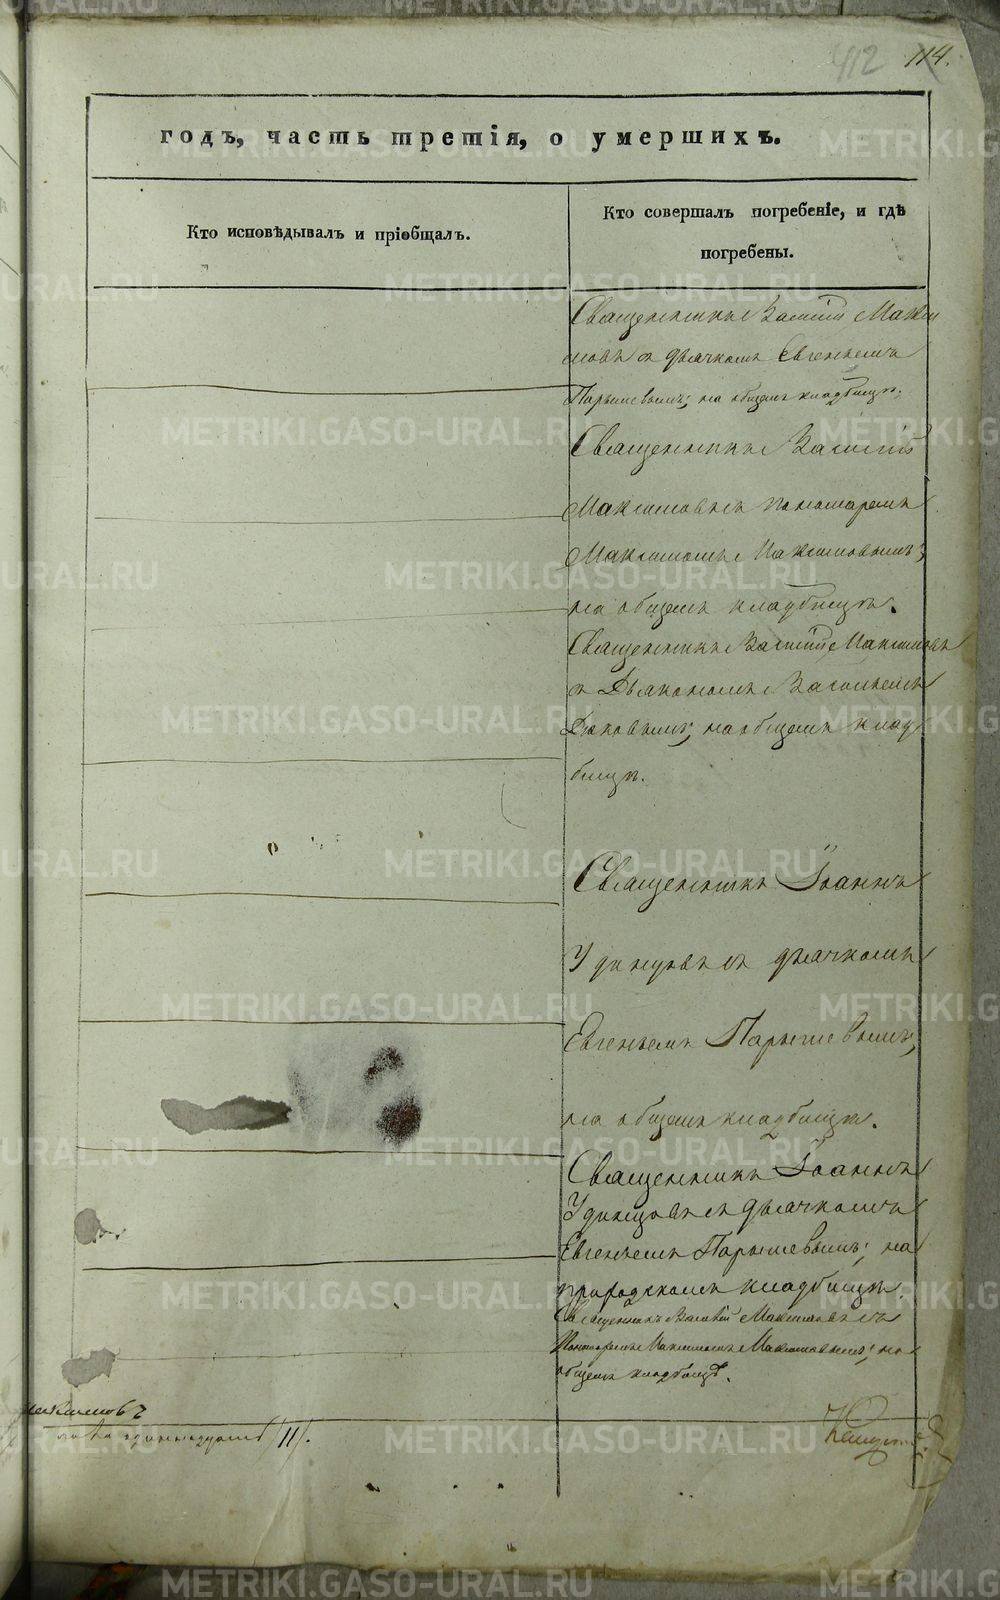 412 114.
годъ, часть третія, о умершихъ.
Кто исповѣдывалъ и пріобщалъ.
Кто совершалъ погребеніе, и гдѣ
погребены.
Священникъ Василій Макси
мовъ съ дьячкомъ Евгеніемъ
Парышевымъ; на общемъ кладбищѣ.
Священникъ Василій
Максимовъ съ пономаремъ
Максимомъ Максимовымъ;
на общемъ кладбищѣ.
Священникъ Василій Максимовъ
съ Дьякономъ Васильемъ
на общемъ клад
бищѣ.
Священникъ Іоаннъ
Удинцовъ съ дьячкомъ
Евгеніемъ Парышевымъ,
на общемъ кладбищѣ.
Священникъ Іоаннъ
Удинцовъ съ дьячкомъ
Евгеніемъ Парышевымъ; на
городскомъ кладбищѣ.
Священникъ Василій Максимовъ съ
Пономаремъ Максимомъ Максимовымъ; на
общемъ кладбищѣ.
одиннадцать (11).
METRIKI.GASO-URAL.RU